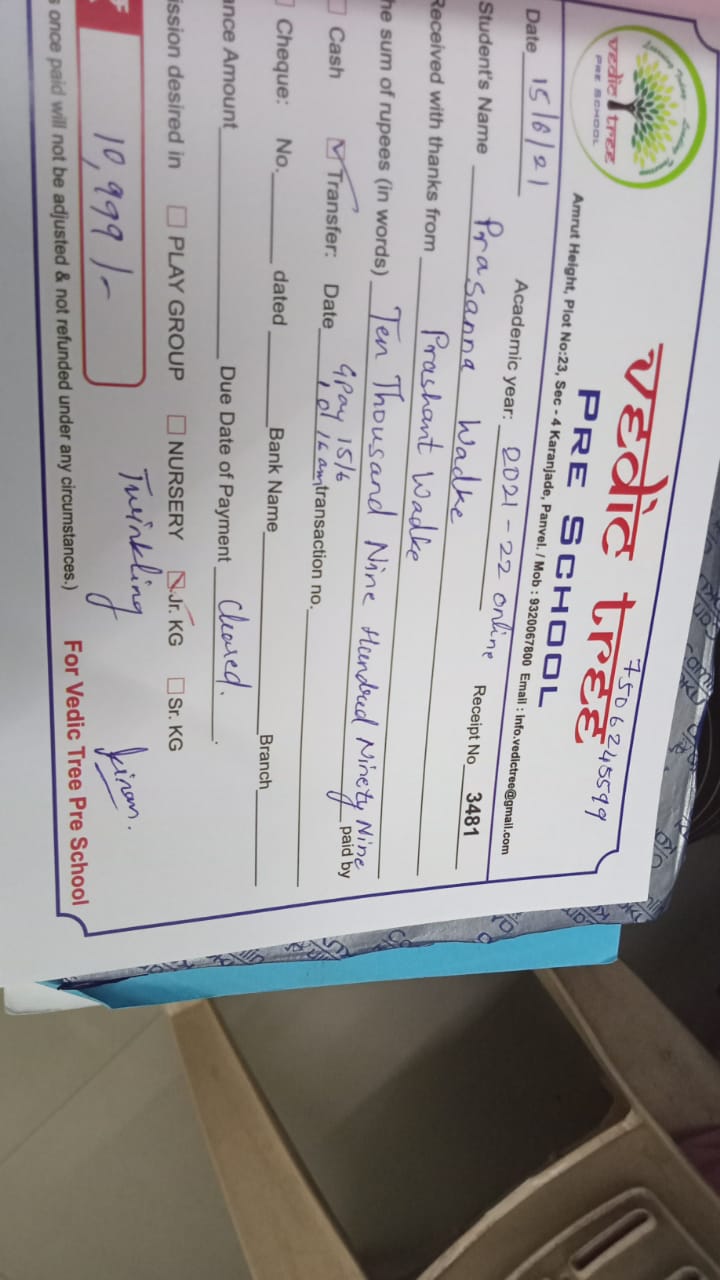 7506245599
vedic tree
PRE SCHOOL
vedic tree
PRE SCHOOL
Amrut Height, Plot No:23, Sec - 4 Karanjade, Panvel. / Mob : 9320067800 Email : Info.vedictree@gmail.com
Date 15/6/21 Academic year: 2021-22 online Receipt No 3481
Student's Name Prasanna Wadke
Received with thanks from Prashant Wadke
he sum of rupees (in words) Ten Thousand Nine Hundred Ninety Nine paid by
Cash Transfer: Date Gpay 15/6 transaction no.
Cheque: No. dated Bank Name Branch
ance Amount Due Date of Payment Cleared.
ission desired in PLAY GROUP NURSERY Jr. KG Sr. KG
10,999/- Twinkling Kiran.
s once paid will not be adjusted & not refunded under any circumstances.) For Vedic Tree Pre School